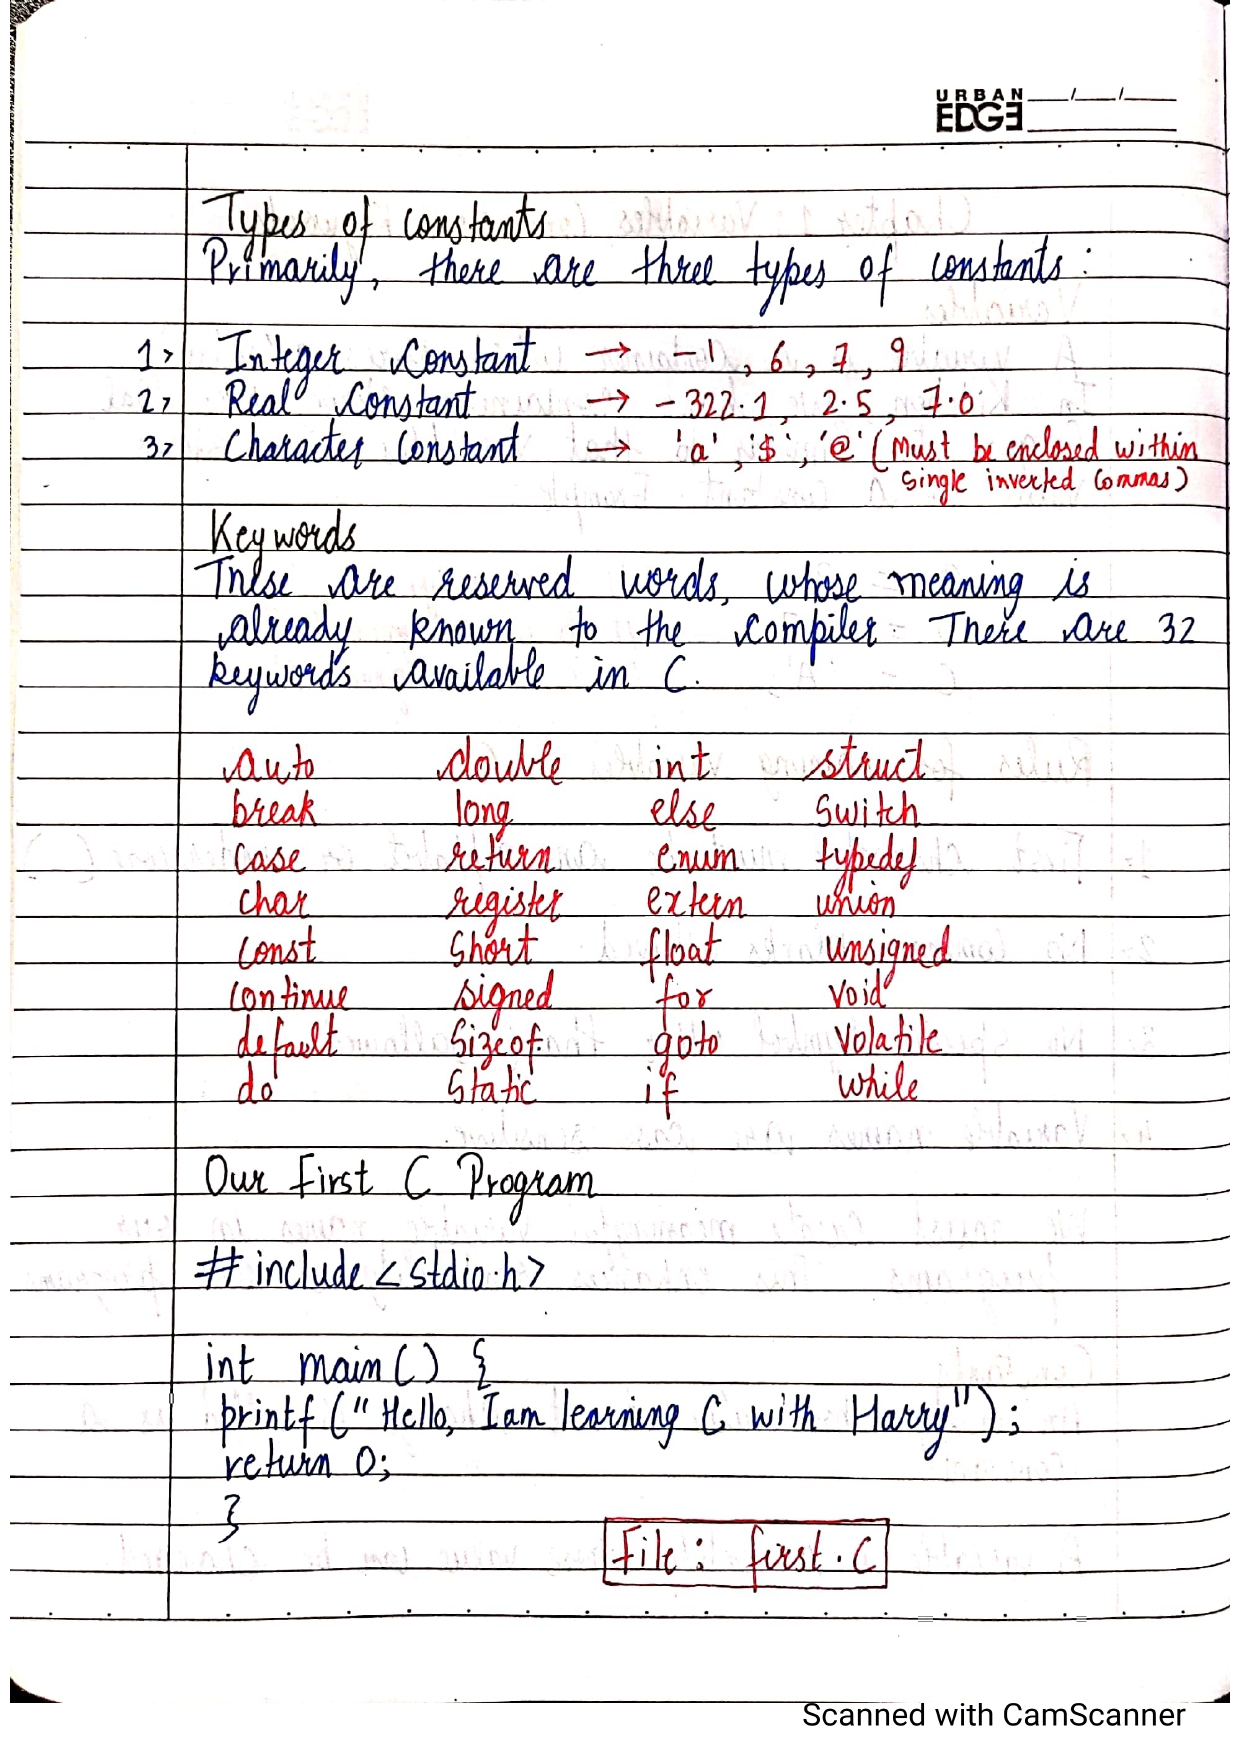 URBAN
EDGE
Types of constants
Primarily, there are three types of constants :
1> Integer Constant → -1, 6, 7, 9
2> Real Constant → -322.1, 2.5, 7.0
3> Character Constant → 'a', '$', '@' (Must be enclosed within
single inverted commas)
Keywords
These are reserved words, whose meaning is
already known to the compiler. There are 32
keywords available in C.
auto double int struct
break long else switch
case return enum typedef
char register extern union
const short float unsigned
continue signed for void
default sizeof goto volatile
do static if while
Our First C Program
#include <stdio.h>
int main() {
printf ("Hello, I am learning C with Harry");
return 0;
}
File : first.c
Scanned with CamScanner